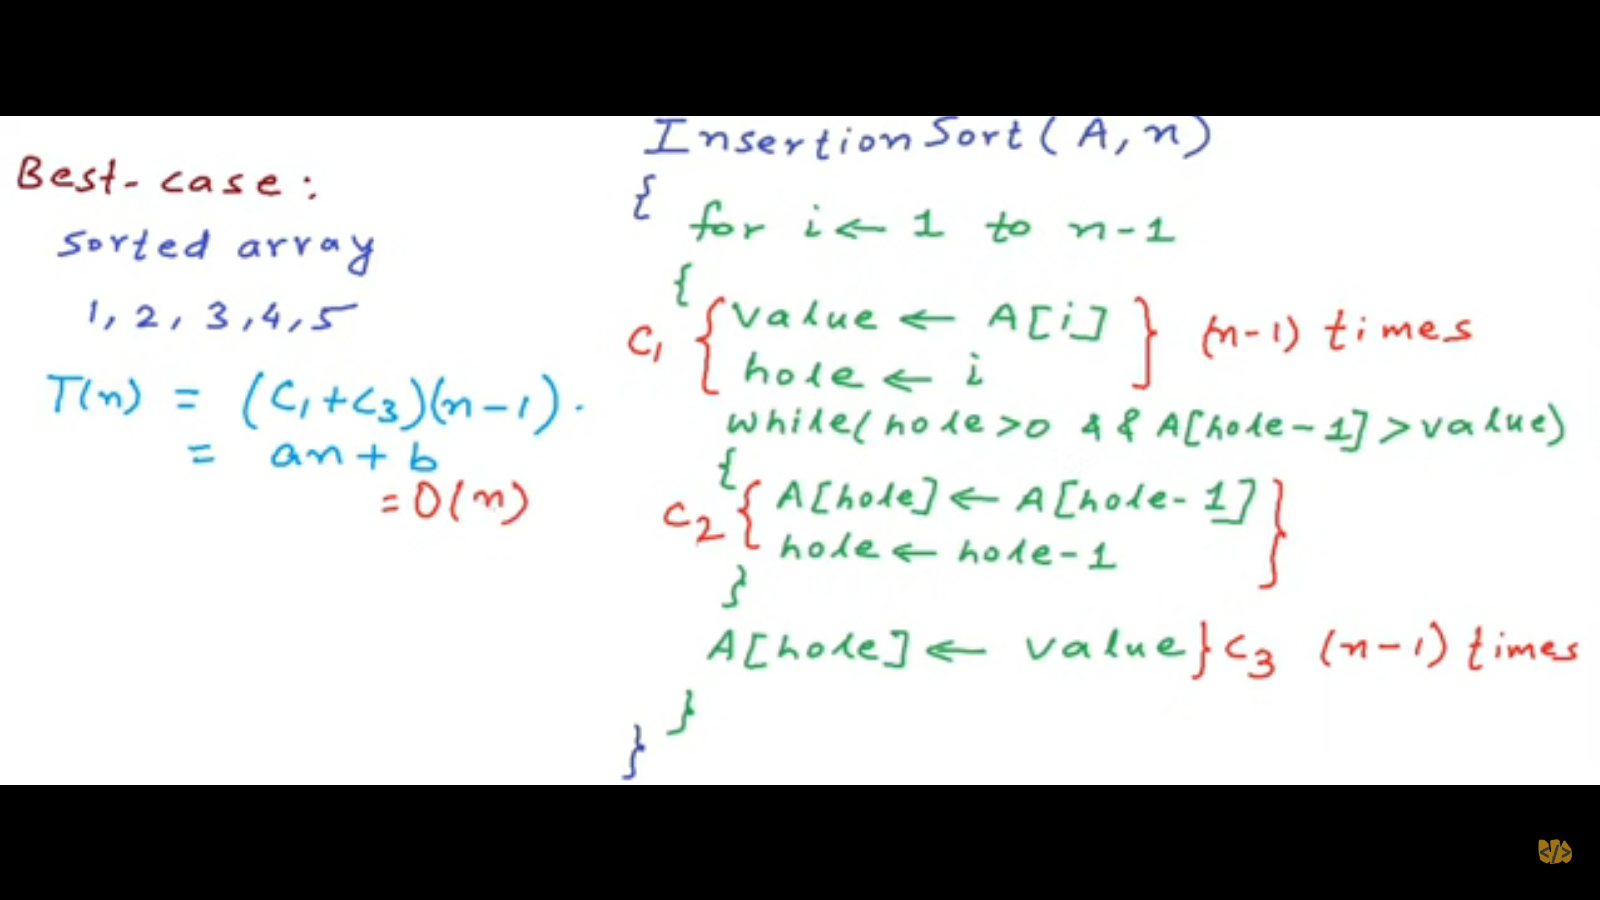 Best-case:
sorted array
1, 2, 3, 4, 5
T(n) = (C₁+C₃)(n-1).
= an + b
= O(n)
InsertionSort(A, n)
{
for i ← 1 to n-1
{
C₁ { value ← A[i] } (n-1) times
hole ← i
while(hole >0 && A[hole-1] > value)
{
C₂ { A[hole] ← A[hole-1] }
hole ← hole-1
}
A[hole] ← value } C₃ (n-1) times
}
}